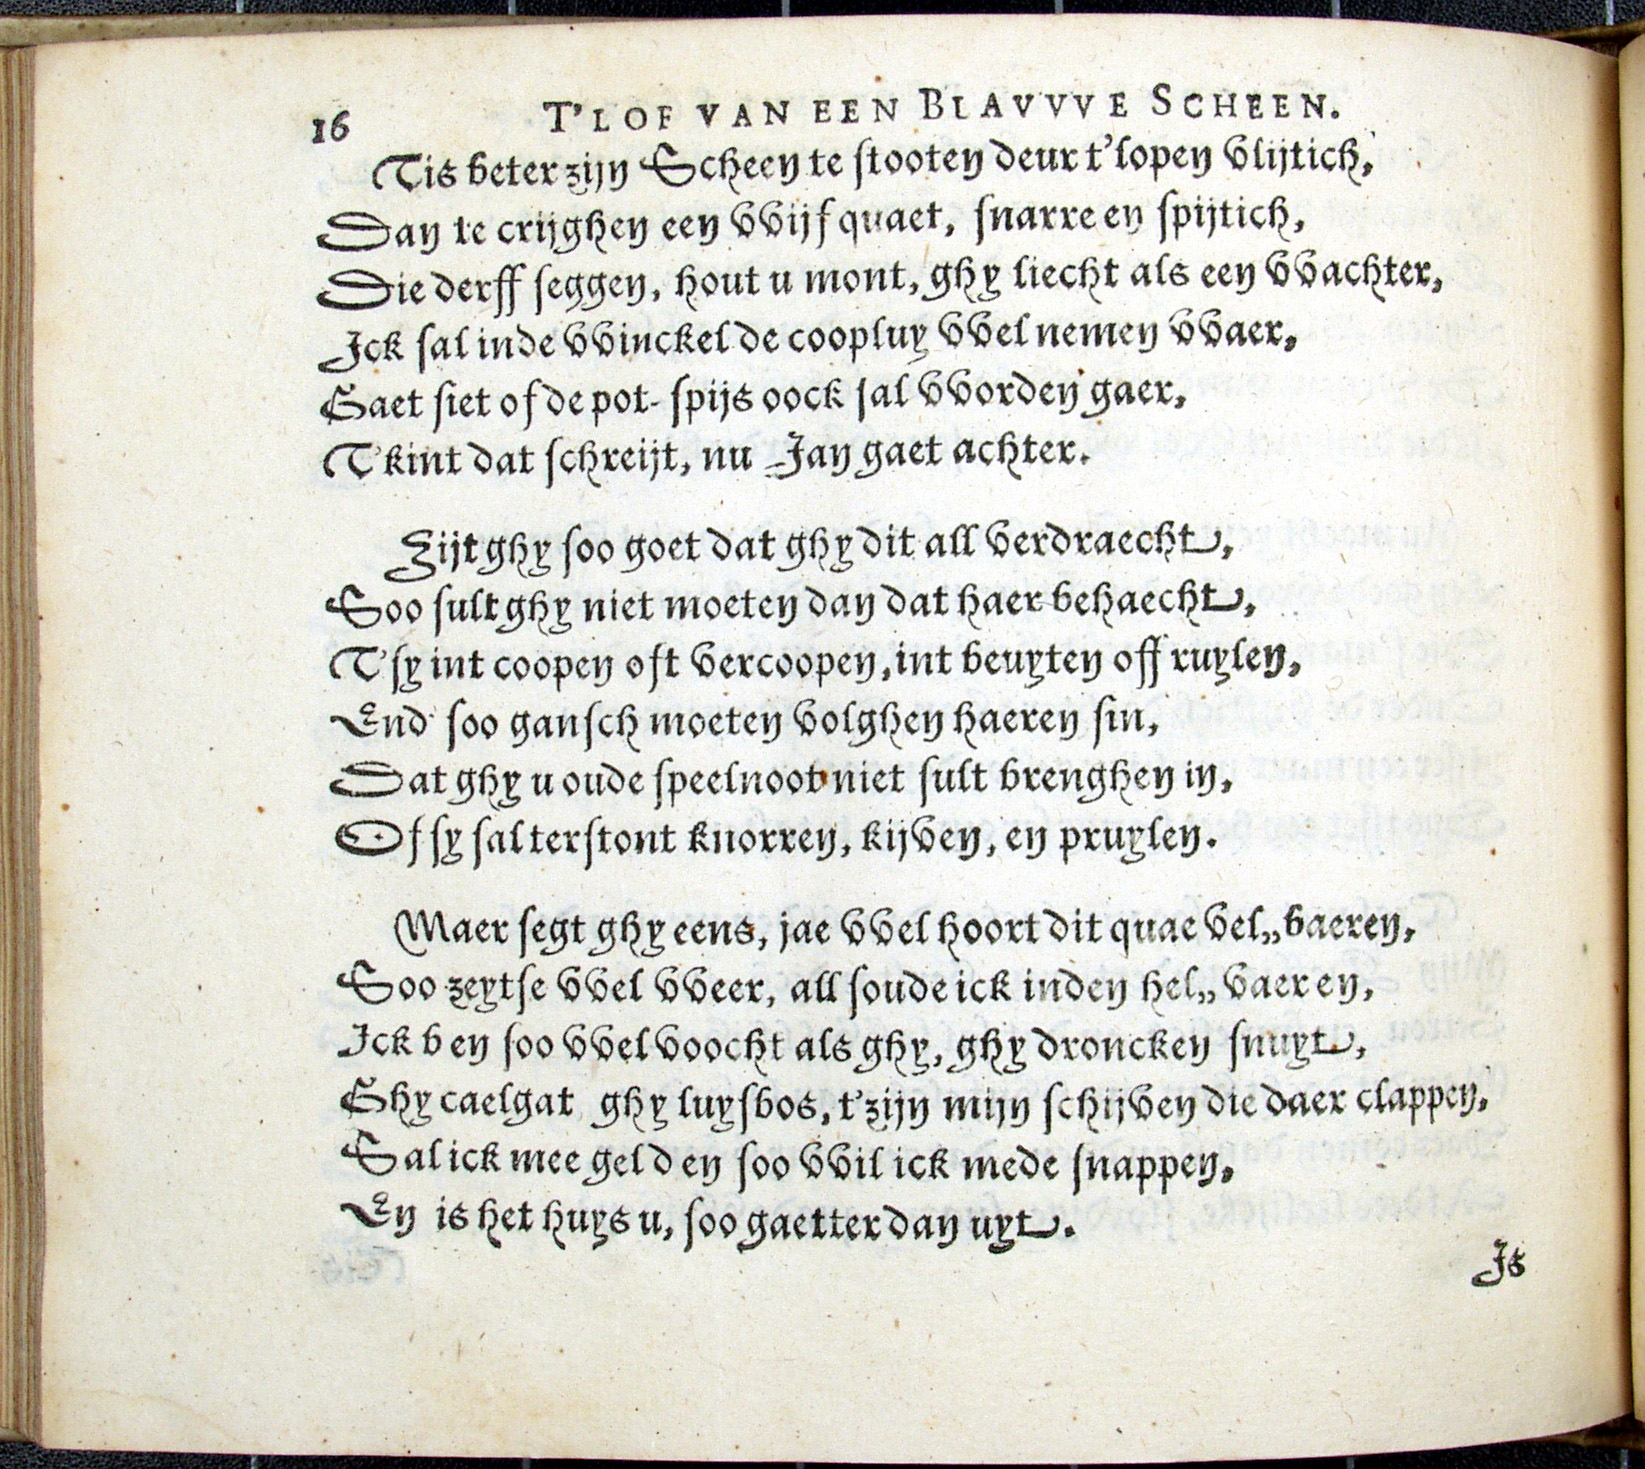 16 T'LOF VAN EEN BLAVVVE SCHEEN.
Tis beter zijn Scheen te stooten deur t'lopen vlijtich,
Dan te crijghen een vvijf quaet, snarre en spijtich,
Die derff seggen, hout u mont, ghy liecht als een vvachter,
Ick sal inde vvinckel de coopluy vvel nemen vvaer,
Gaet siet of de pot-spijs oock sal vvorden gaer,
T'kint dat schreijt, nu Jan gaet achter.
Zijt ghy soo goet dat ghy dit all verdraecht,
Soo sult ghy niet moeten dan dat haer behaecht,
T'sy int coopen oft vercoopen, int beuyten off ruylen,
End' soo gansch moeten volghen haeren sin,
Dat ghy u oude speelnoot niet sult brenghen in,
Of sy sal terstont knorren, kijven, en pruylen.
Maer segt ghy eens, jae vvel hoort dit quae vel„baeren,
Soo zeytse vvel vveer, all soude ick inden hel„ vaeren,
Ick ben soo vvel voocht als ghy, ghy droncken snuyt,
Ghy caelgat ghy luysbos, t'zijn mijn schijven die daer clappen,
Sal ick mee gelden soo vvil ick mede snappen,
En is het huys u, soo gaetter dan uyt.
Is